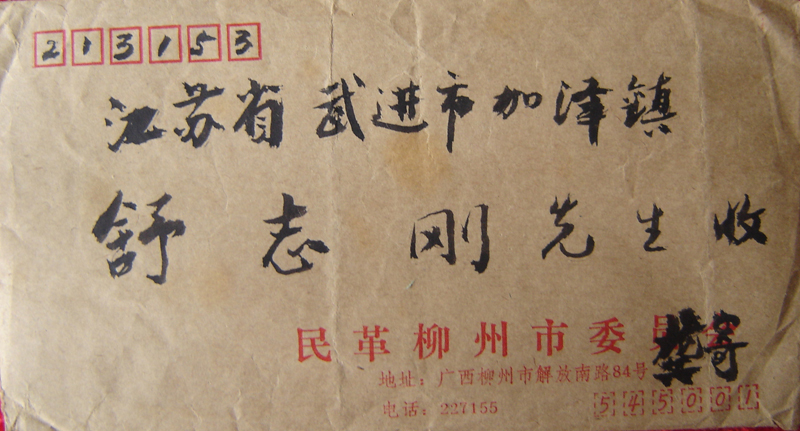 213153
江苏省武进市加泽镇
舒志刚先生收
民革柳州市委员会
寄
地址：广西柳州市解放南路84号
电话：227155
545001